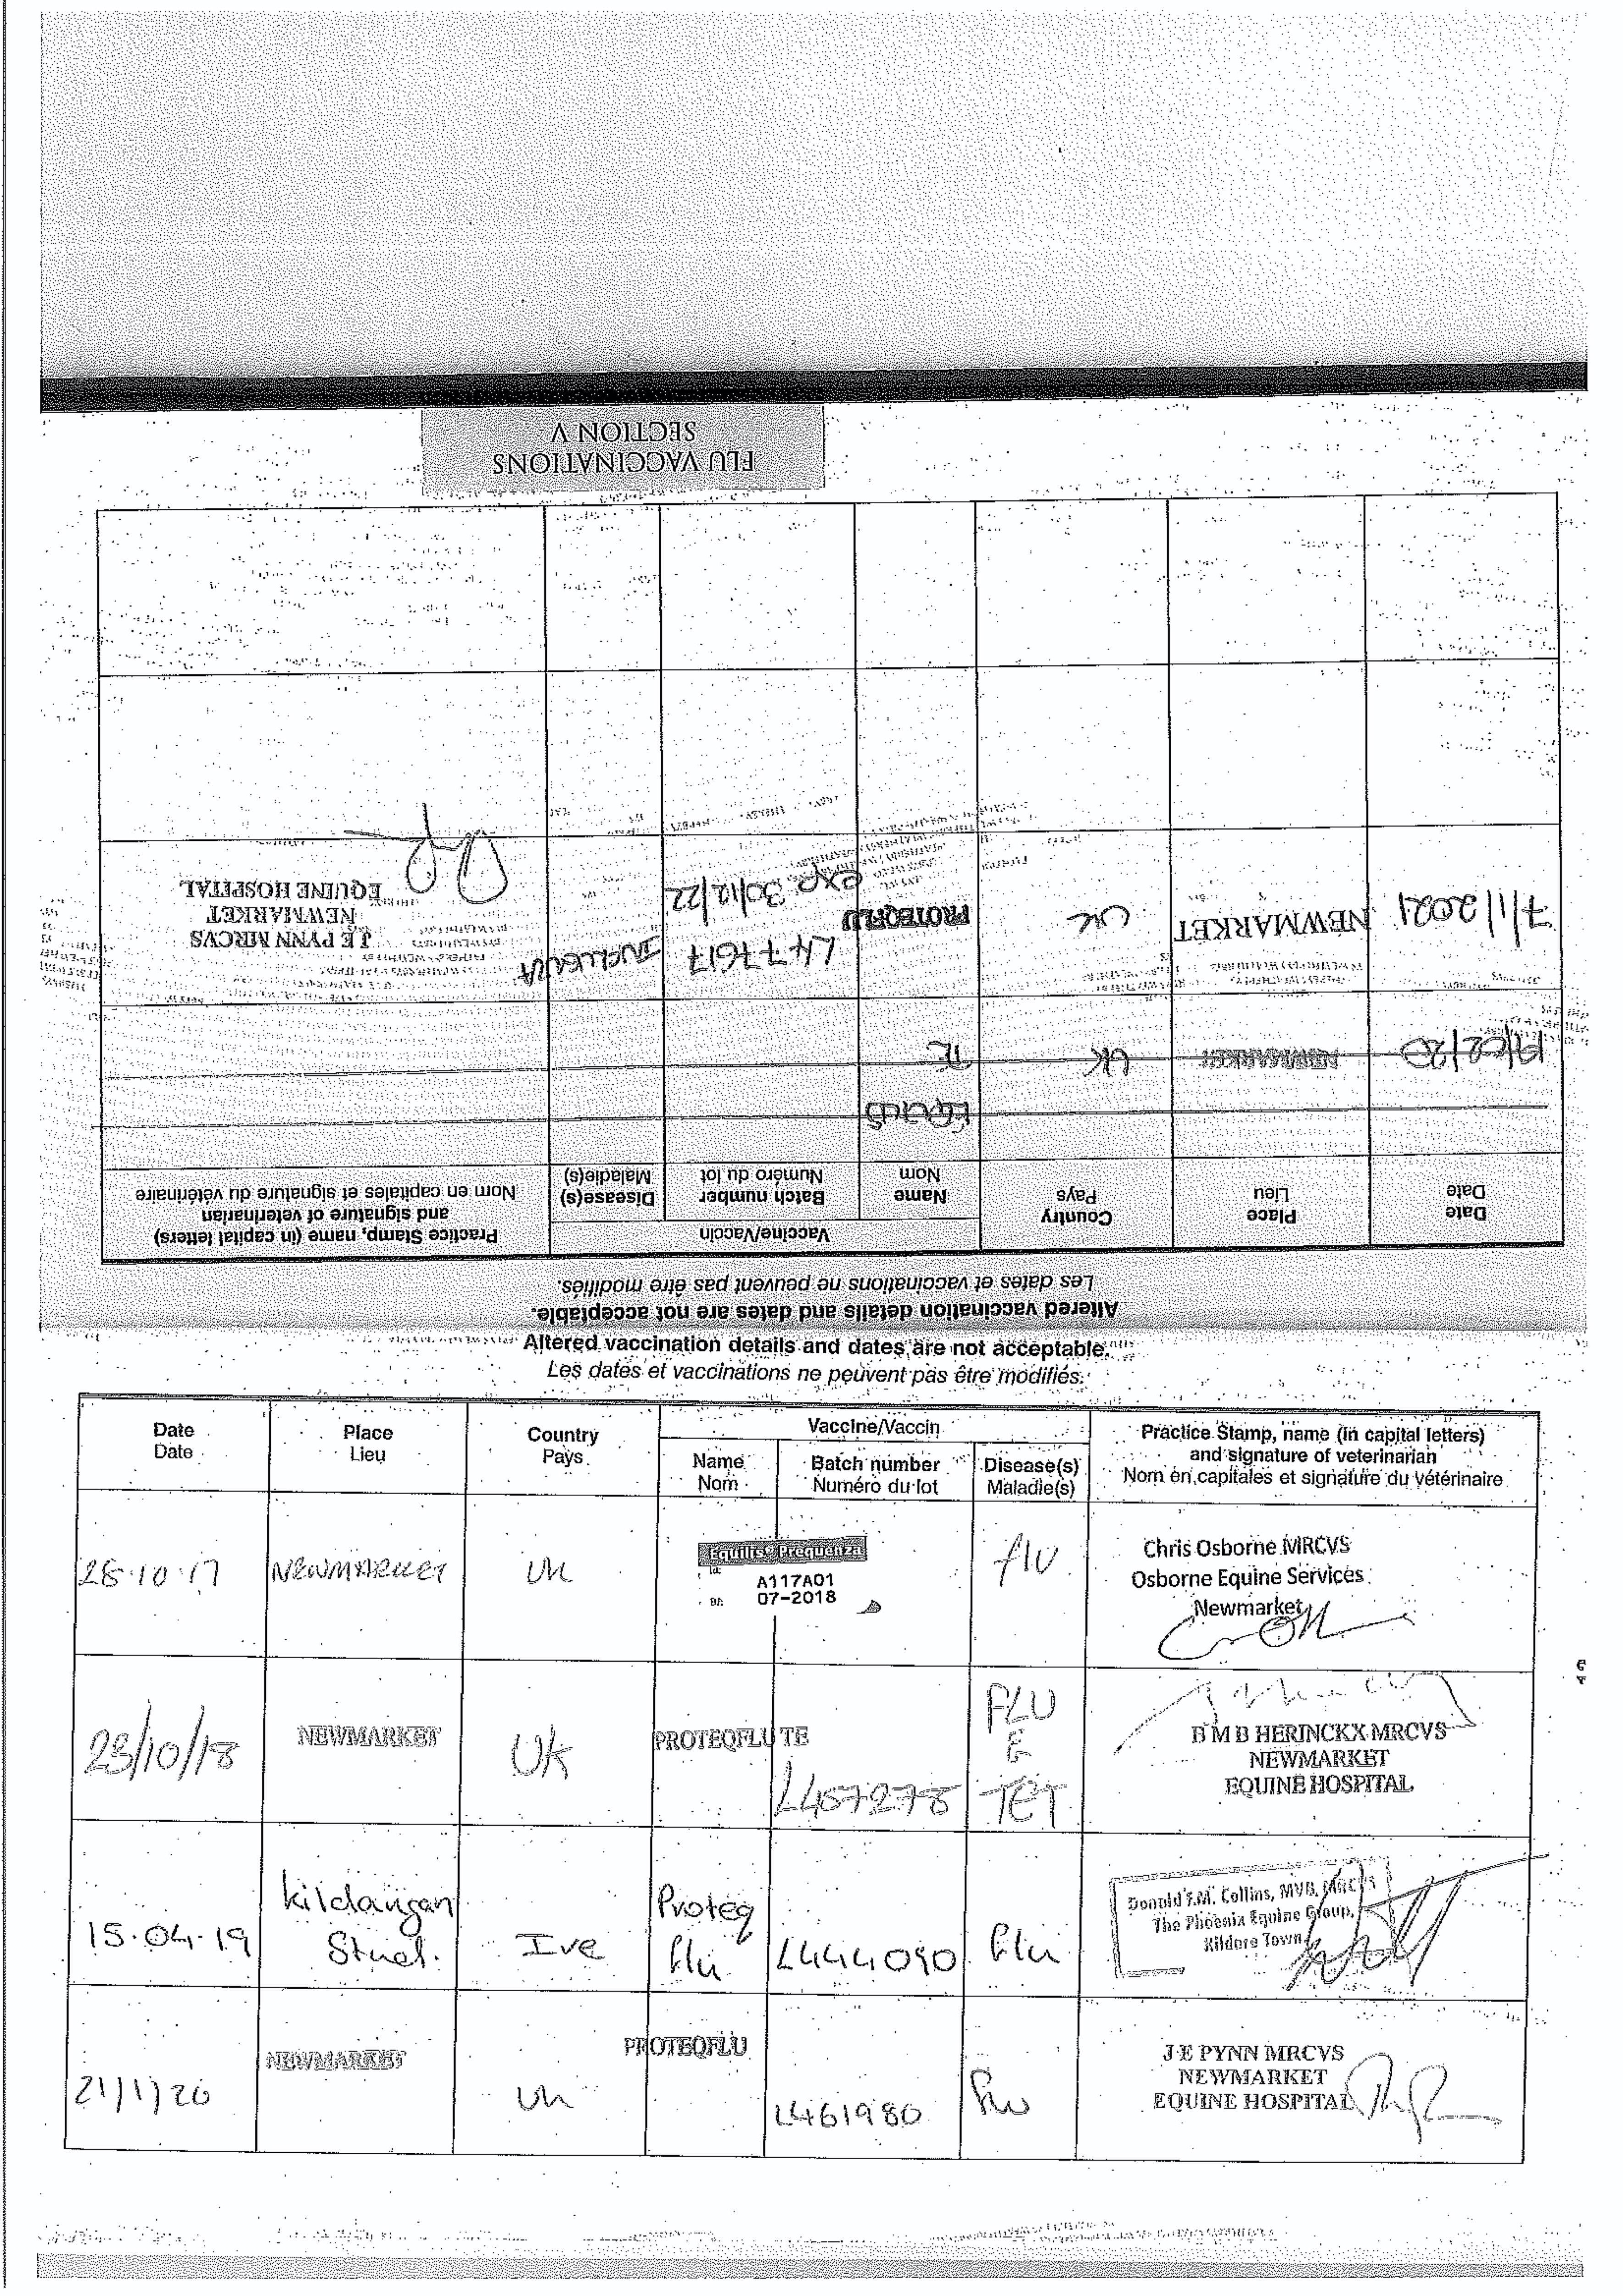 FLU VACCINATIONS
SECTION V
Altered vaccination details and dates are not acceptable.
Les dates et vaccinations ne peuvent pas être modifiés.
Date
Date
Place
Lieu
Country
Pays
Vaccine/Vaccin
Name
Nom
Batch number
Numéro du lot
Disease(s)
Maladie(s)
Practice Stamp, name (in capital letters)
and signature of veterinarian
Nom en capitales et signature du vétérinaire
19/02/20 NEWMARKET UK TE
7/1/2021 NEWMARKET UK PROTEQFLU L477617
exp 30/12/22
J.E PYNN MRCVS
NEWMARKET
EQUINE HOSPITAL
Altered vaccination details and dates are not acceptable.
Les dates et vaccinations ne peuvent pas être modifiés.
Date
Date
Place
Lieu
Country
Pays
Vaccine/Vaccin
Name
Nom
Batch number
Numéro du lot
Disease(s)
Maladie(s)
Practice Stamp, name (in capital letters)
and signature of veterinarian
Nom en capitales et signature du vétérinaire
28.10.17 NEWMARKET UK
Equilis Prequenza
A117A01
07-2018
flu
Chris Osborne MRCVS
Osborne Equine Services
Newmarket
23/10/18 NEWMARKET UK PROTEQFLU TE
L457278
FLU
&
TET
B M B HERINCKX MRCVS
NEWMARKET
EQUINE HOSPITAL
15.04.19
Kildangan
Stud.
Ire
Proteq
flu
L444090
flu
Donald F.M. Collins, MVB, MRCVS
The Phoenix Equine Group,
Kildare Town
21/1/20 NEWMARKET UK PROTEQFLU
L461980
flu
J E PYNN MRCVS
NEWMARKET
EQUINE HOSPITAL